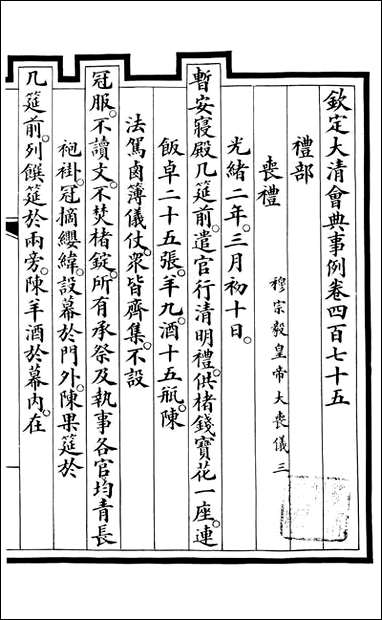 欽定大清會典事例卷四百七十五
禮部
喪禮 穆宗毅皇帝大喪儀三
光緒二年。三月初十日。
暫安寢殿几筵前。遣官行清明禮。供楮錢寶花一座。連
飯卓二十五張。羊九。酒十五瓶。陳
法駕鹵簿儀仗。衆皆齊集。不設
冠服。不讀文。不焚楮錠。所有承祭及執事各官均青長
袍褂。冠摘纓緯。設幕於門外。陳果筵於
几筵前。列饌筵於兩旁。陳羊酒於幕內。在